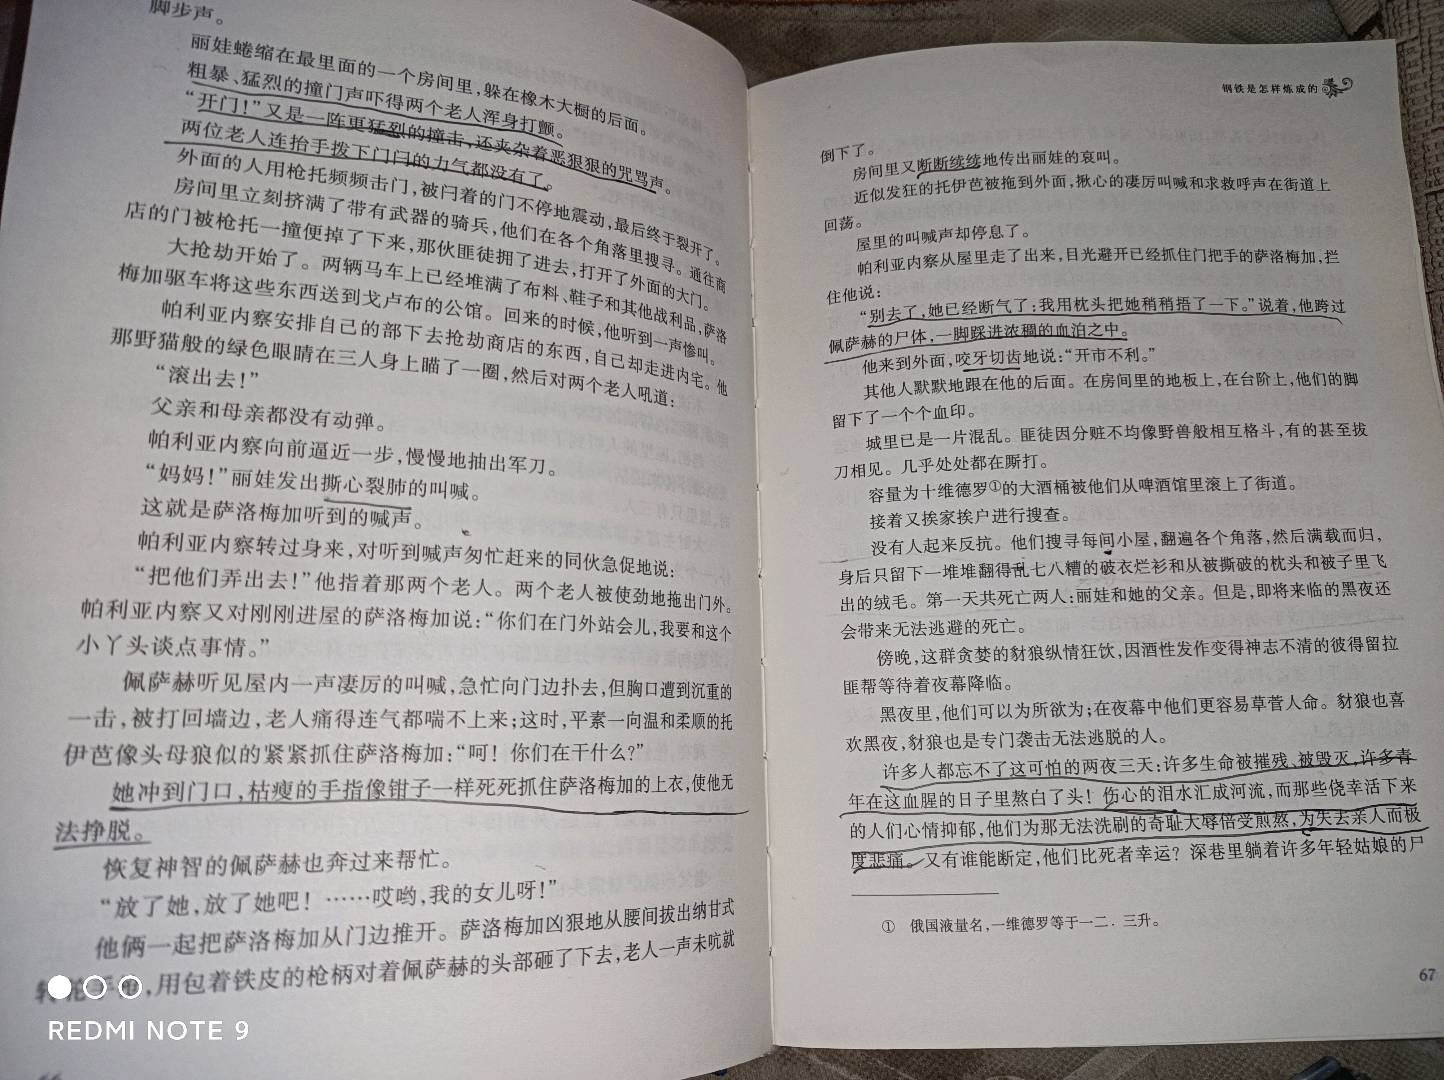 脚步声。
丽娃蜷缩在最里面的一个房间里，躲在橡木大橱的后面。
粗暴、猛烈的撞门声吓得两个老人浑身打颤。
“开门！”又是一阵更猛烈的撞击，还夹杂着恶狠狠的咒骂声。
两位老人连抬手拨下门闩的力气都没有了。
外面的人用枪托频频击门，被闩着的门不停地震动，最后终于裂开了。
房间里立刻挤满了带有武器的骑兵，他们在各个角落里搜寻。通往商
店的门被枪托一撞便掉了下来，那伙匪徒拥了进去，打开了外面的大门。
大抢劫开始了。两辆马车上已经堆满了布料、鞋子和其他战利品，萨洛
梅加驱车将这些东西送到戈卢布的公馆。回来的时候，他听到一声惨叫。
帕利亚内察安排自己的部下去抢劫商店的东西，自己却走进内宅。他
那野猫般的绿色眼睛在三人身上瞄了一圈，然后对两个老人吼道：
“滚出去！”
父亲和母亲都没有动弹。
帕利亚内察向前逼近一步，慢慢地抽出军刀。
“妈妈！”丽娃发出撕心裂肺的叫喊。
这就是萨洛梅加听到的喊声。
帕利亚内察转过身来，对听到喊声匆忙赶来的同伙急促地说：
“把他们弄出去！”他指着那两个老人。两个老人被使劲地拖出门外。
帕利亚内察又对刚刚进屋的萨洛梅加说：“你们在门外站会儿，我要和这个
小丫头谈点事情。”
佩萨赫听见屋内一声凄厉的叫喊，急忙向门边扑去，但胸口遭到沉重的
一击，被打回墙边，老人痛得连气都喘不上来；这时，平素一向温和柔顺的托
伊芭像头母狼似的紧紧抓住萨洛梅加：“呵！你们在干什么？”
她冲到门口，枯瘦的手指像钳子一样死死抓住萨洛梅加的上衣，使他无
法挣脱。
恢复神智的佩萨赫也奔过来帮忙。
“放了她，放了她吧！……哎哟，我的女儿呀！”
他俩一起把萨洛梅加从门边推开。萨洛梅加凶狠地从腰间拔出纳甘式
，用包着铁皮的枪柄对着佩萨赫的头部砸了下去，老人一声未吭就
REDMI NOTE 9
钢铁是怎样炼成的
倒下了。
房间里又断断续续地传出丽娃的哀叫。
近似发狂的托伊芭被拖到外面，揪心的凄厉叫喊和求救呼声在街道上
回荡。
屋里的叫喊声却停息了。
帕利亚内察从屋里走了出来，目光避开已经抓住门把手的萨洛梅加，拦
住他说：
“别去了，她已经断气了：我用枕头把她稍稍捂了一下。”说着，他跨过
佩萨赫的尸体，一脚踩进浓稠的血泊之中。
他来到外面，咬牙切齿地说：“开市不利。”
其他人默默地跟在他的后面。在房间里的地板上，在台阶上，他们的脚
留下了一个个血印。
城里已是一片混乱。匪徒因分赃不均像野兽般相互格斗，有的甚至拔
刀相见。几乎处处都在厮打。
容量为十维德罗①的大酒桶被他们从啤酒馆里滚上了街道。
接着又挨家挨户进行搜查。
没有人起来反抗。他们搜寻每间小屋，翻遍各个角落，然后满载而归，
身后只留下一堆堆翻得乱七八糟的破衣烂衫和从被撕破的枕头和被子里飞
出的绒毛。第一天共死亡两人：丽娃和她的父亲。但是，即将来临的黑夜还
会带来无法逃避的死亡。
傍晚，这群贪婪的豺狼纵情狂饮，因酒性发作变得神志不清的彼得留拉
匪帮等待着夜幕降临。
黑夜里，他们可以为所欲为；在夜幕中他们更容易草菅人命。豺狼也喜
欢黑夜，豺狼也是专门袭击无法逃脱的人。
许多人都忘不了这可怕的两夜三天：许多生命被摧残、被毁灭，许多青
年在这血腥的日子里熬白了头！伤心的泪水汇成河流，而那些侥幸活下来
的人们心情抑郁，他们为那无法洗刷的奇耻大辱倍受煎熬，为失去亲人而极
度悲痛。又有谁能断定，他们比死者幸运？深巷里躺着许多年轻姑娘的尸
① 俄国液量名，一维德罗等于一二．三升。
67